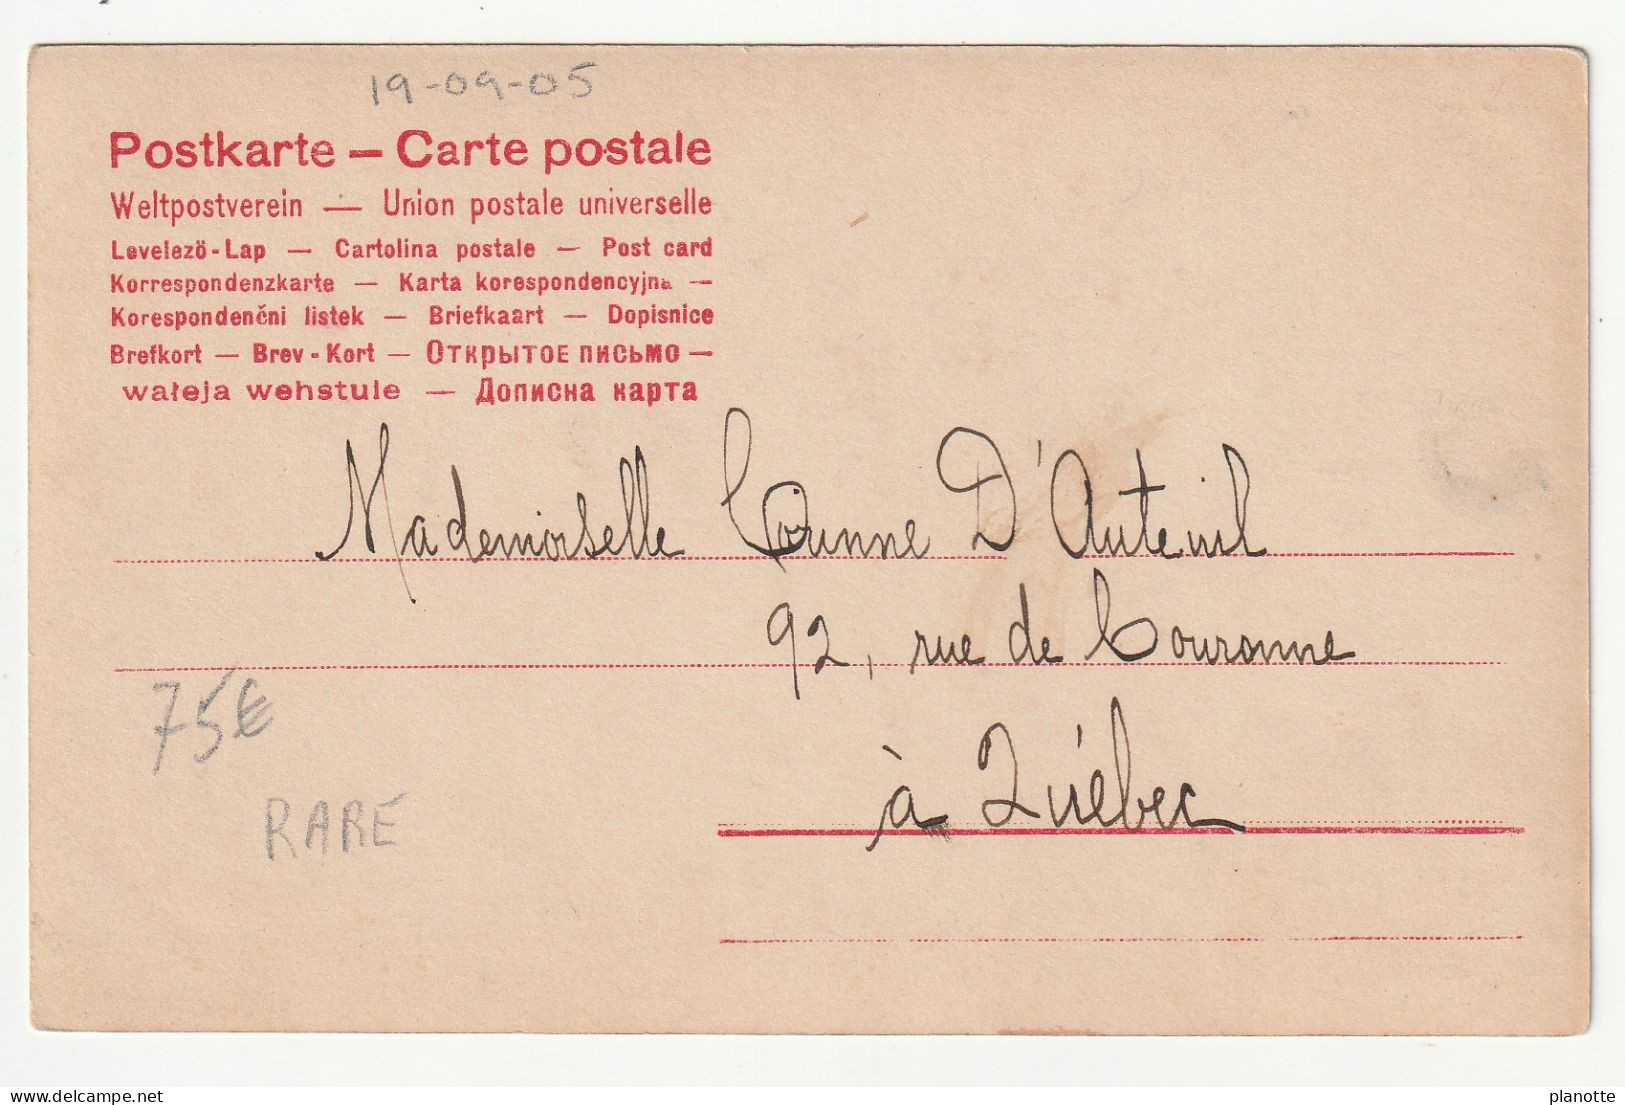 19-09-05
Postkarte — Carte postale
Weltpostverein — Union postale universelle
Levelezö-Lap — Cartolina postale — Post card
Korrespondenzkarte — Karta korespondencyjna —
Korespondenčni listek — Briefkaart — Dopisnice
Brefkort — Brev-Kort — Открытое письмо —
wałeja wehstule — Дописна карта
Mademoiselle Corinne D'Auteuil
92, rue de Couronne
à Québec
75€
RARE
delcampe.net
planotte